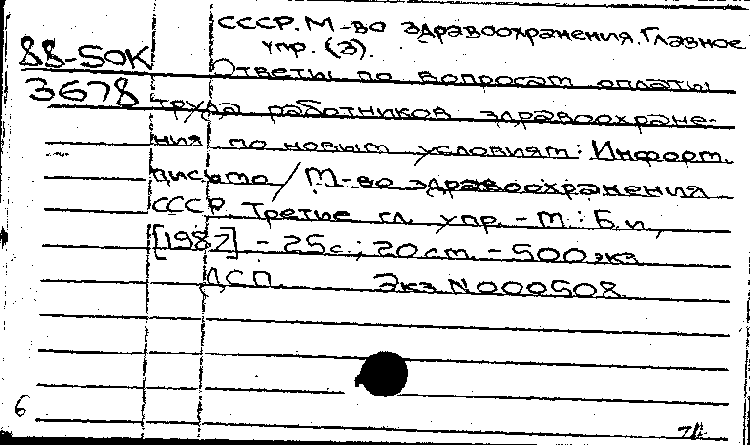 СССР. М-во здравоохранения. Главное
упр. (3).
88-50К Ответы по вопросам оплаты
3678 труда работников здравоохране-
ния по новым условиям: Информ.
письмо / М-во здравоохранения
СССР. Третье гл. упр. - М.: Б.и.,
[1987] - 25 с.; 20 см. - 500 экз.
ДСП. Экз. N000508
6